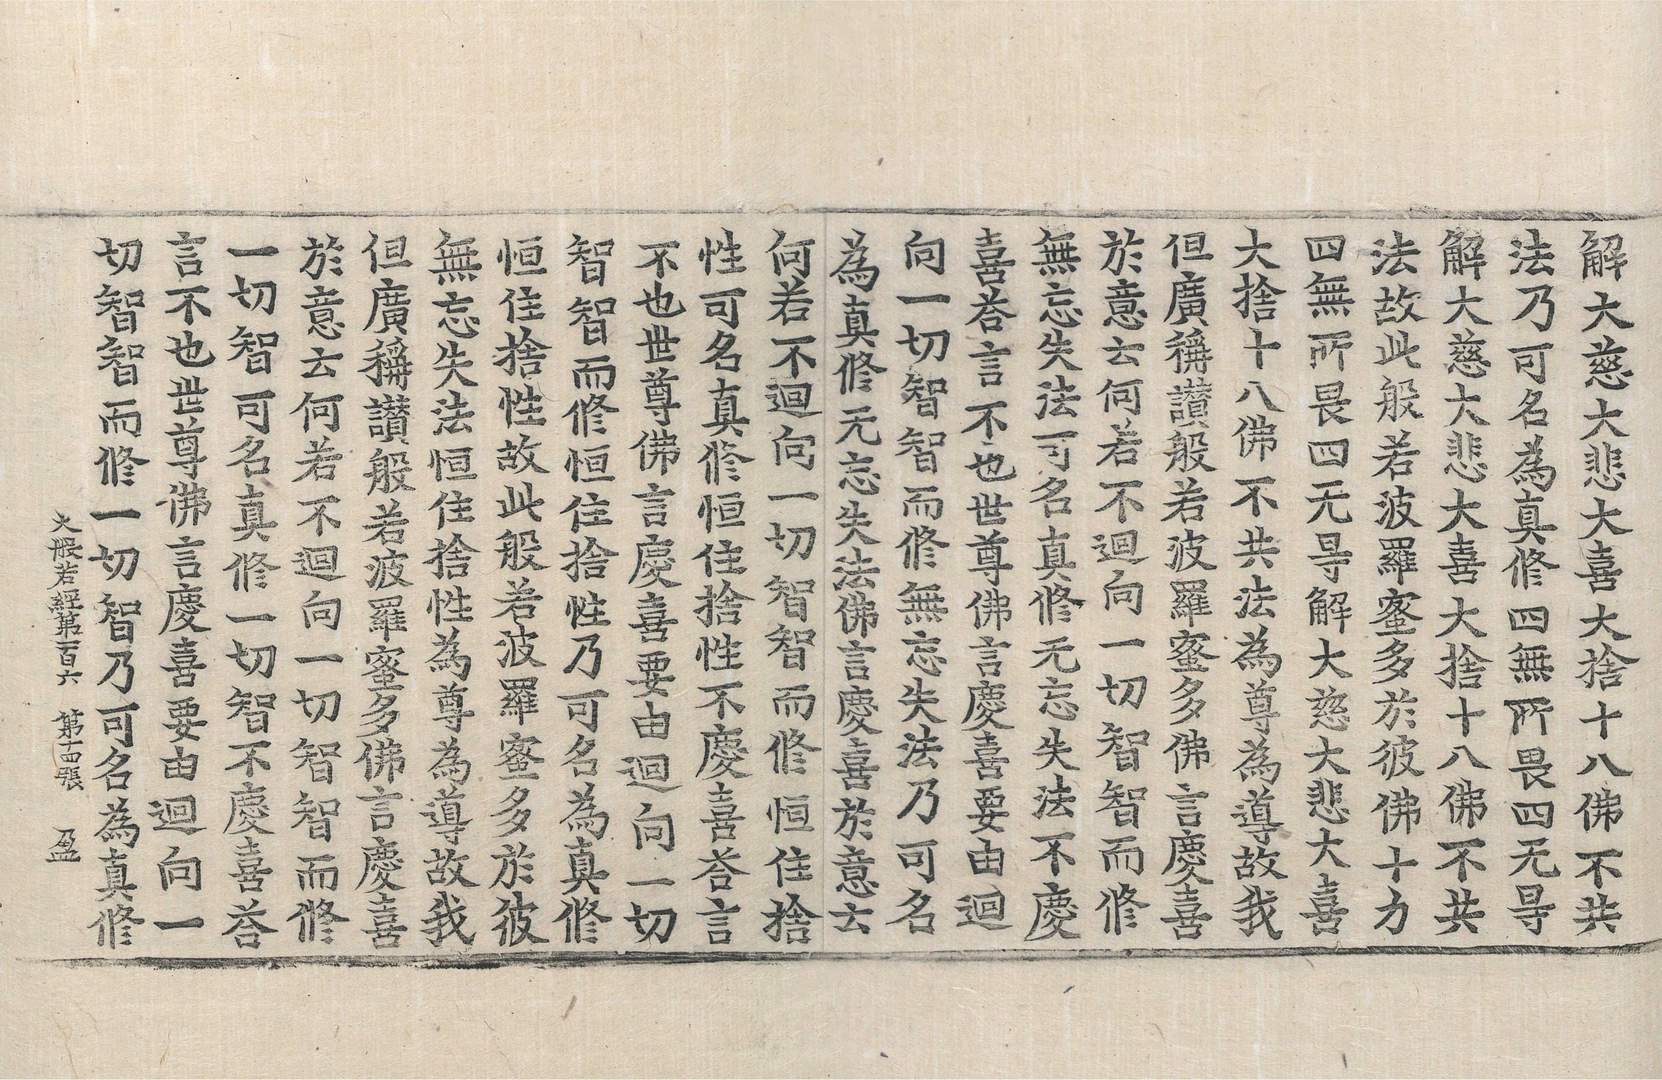 解大慈大悲大喜大捨十八佛不共
法乃可名為真修四無所畏四无㝵
解大慈大悲大喜大捨十八佛不共
法故此般若波羅蜜多於彼佛十力
四無所畏四无㝵解大慈大悲大喜
大捨十八佛不共法為尊為導故我
但廣稱讃般若波羅蜜多佛言慶喜
於意云何若不迴向一切智智而修
無忘失法可名真修无忘失法不慶
喜荅言不也世尊佛言慶喜要由迴
向一切智智而修無忘失法乃可名
為真修无忘失法佛言慶喜於意云
何若不迴向一切智智而修恒住捨
性可名真修恒住捨性不慶喜荅言
不也世尊佛言慶喜要由迴向一切
智智而修恒住捨性乃可名為真修
恒住捨性故此般若波羅蜜多於彼
無忘失法恒住捨性為尊為導故我
但廣稱讃般若波羅蜜多佛言慶喜
於意云何若不迴向一切智智而修
一切智可名真修一切智不慶喜荅
言不也世尊佛言慶喜要由迴向一
切智智而修一切智乃可名為真修
大般若經第百六 第十四張 盈